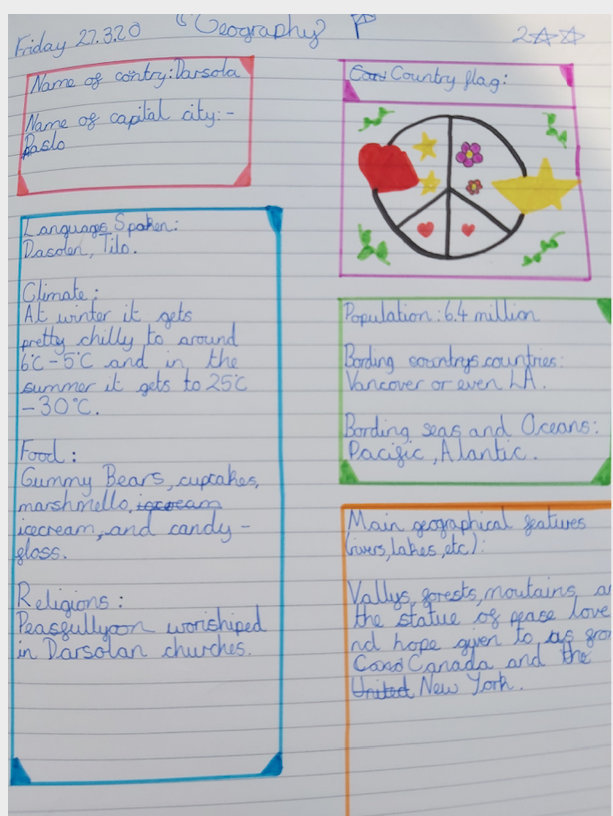 "Geography
Friday 27.3.20
Name of contry: Darsola
Name of capital city:-
Paslo
Languages Spoken:
Dasolen, Tilo.
Climate:
At winter it gets
pretty chilly to around
6°C-5°C and in the
summer it gets to 25°C
-30°C.
Food:
Gummy Bears, cupcakes,
marshmello, icecream
icecream, and candy-
gloss.
Religions:
Peasfullyoon worishiped
in Darsolan churches.
Country flag:
Population: 6.4 million
Bording countrys countries:
Vancover or even LA.
Bording seas and Oceans:
Pacific, Alantic.
Main geographical features
(rivers, lakes, etc):
Vallys, forests, moutains, a
the statue of pease love
nd hope given to us fro
Canada and the
United New York.